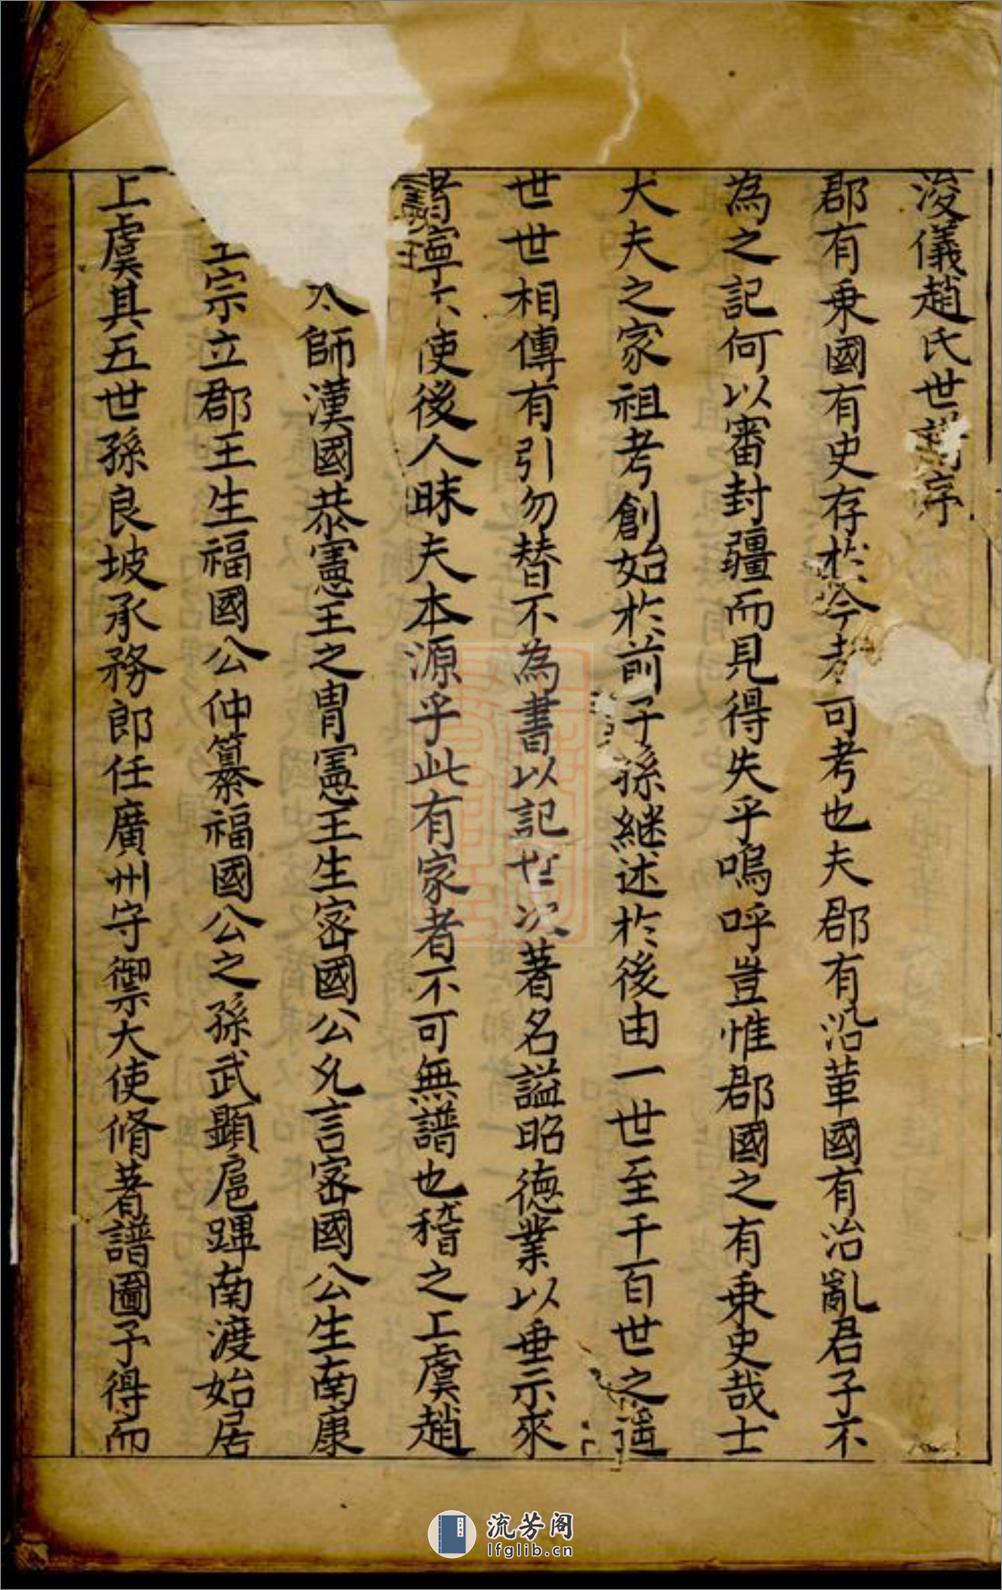 浚儀趙氏世譜序
郡有乗國有史存於今者可考也夫郡有沿革國有治亂君子不
為之記何以審封疆而見得失乎嗚呼豈惟郡國之有乗史哉士
大夫之家祖考創始於前子孫継述於後由一世至千百世之遥
世世相傳有引勿替不為書以記世次著名謚昭徳業以垂示來
者寧不使後人昧夫本源乎此有家者不可無譜也稽之上虞趙
太師漢國恭憲王之胄憲王生宻國公允言宻國公生南康
宗立郡王生福國公仲纂福國公之孫武顯扈蹕南渡始居
上虞其五世孫良坡承務郎任廣州守禦大使脩著譜圖予得而
流芳阁
lfglib.cn